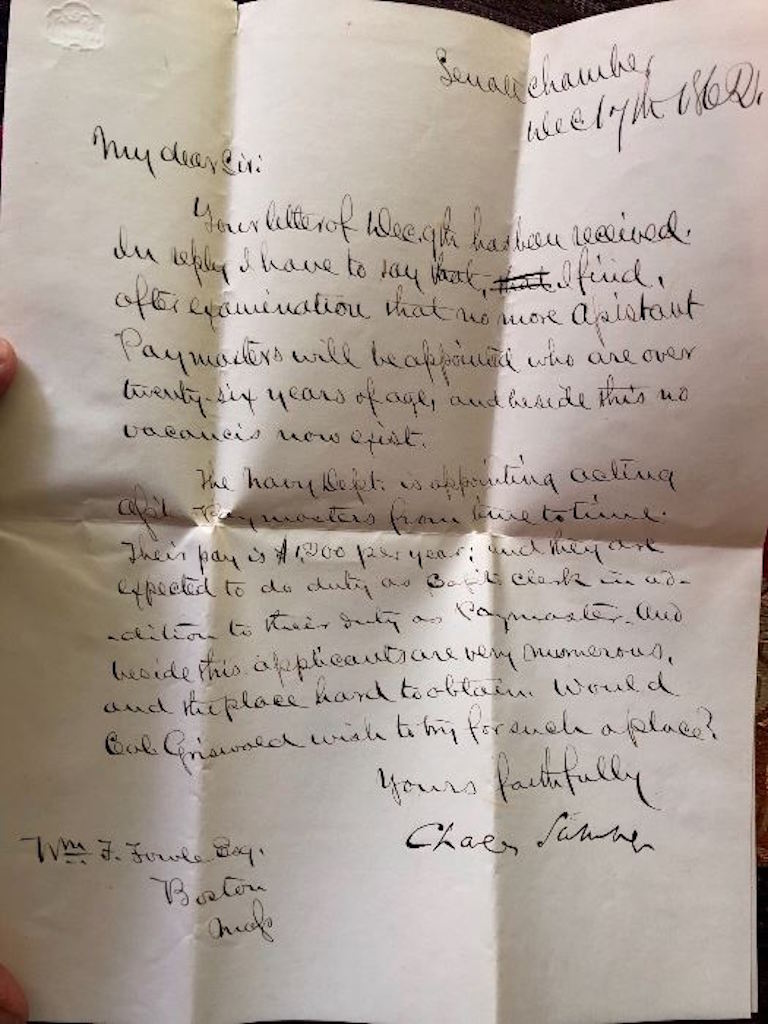 Senate chamber
Dec 17th 1862.
My dear Sir:
Your letter of Dec. 9th has been received.
In reply I have to say that, that I find,
after examination that no more Assistant
Paymasters will be appointed who are over
twenty-six years of age, and beside this no
vacancis now exist.
The Navy Dept. is appointing acting
Asst. Paymasters from time to time.
Their pay is $1,200 per year; and they are
expected to do duty as Capt's clerk in ad-
-dition to their duty as Paymaster. And
beside this applicants are very numerous,
and the place hard to obtain. Would
Griswold wish to try for such a place?
Yours faithfully
Charles Sumner
Wm. F. Fowle Esq.
Boston
Mass